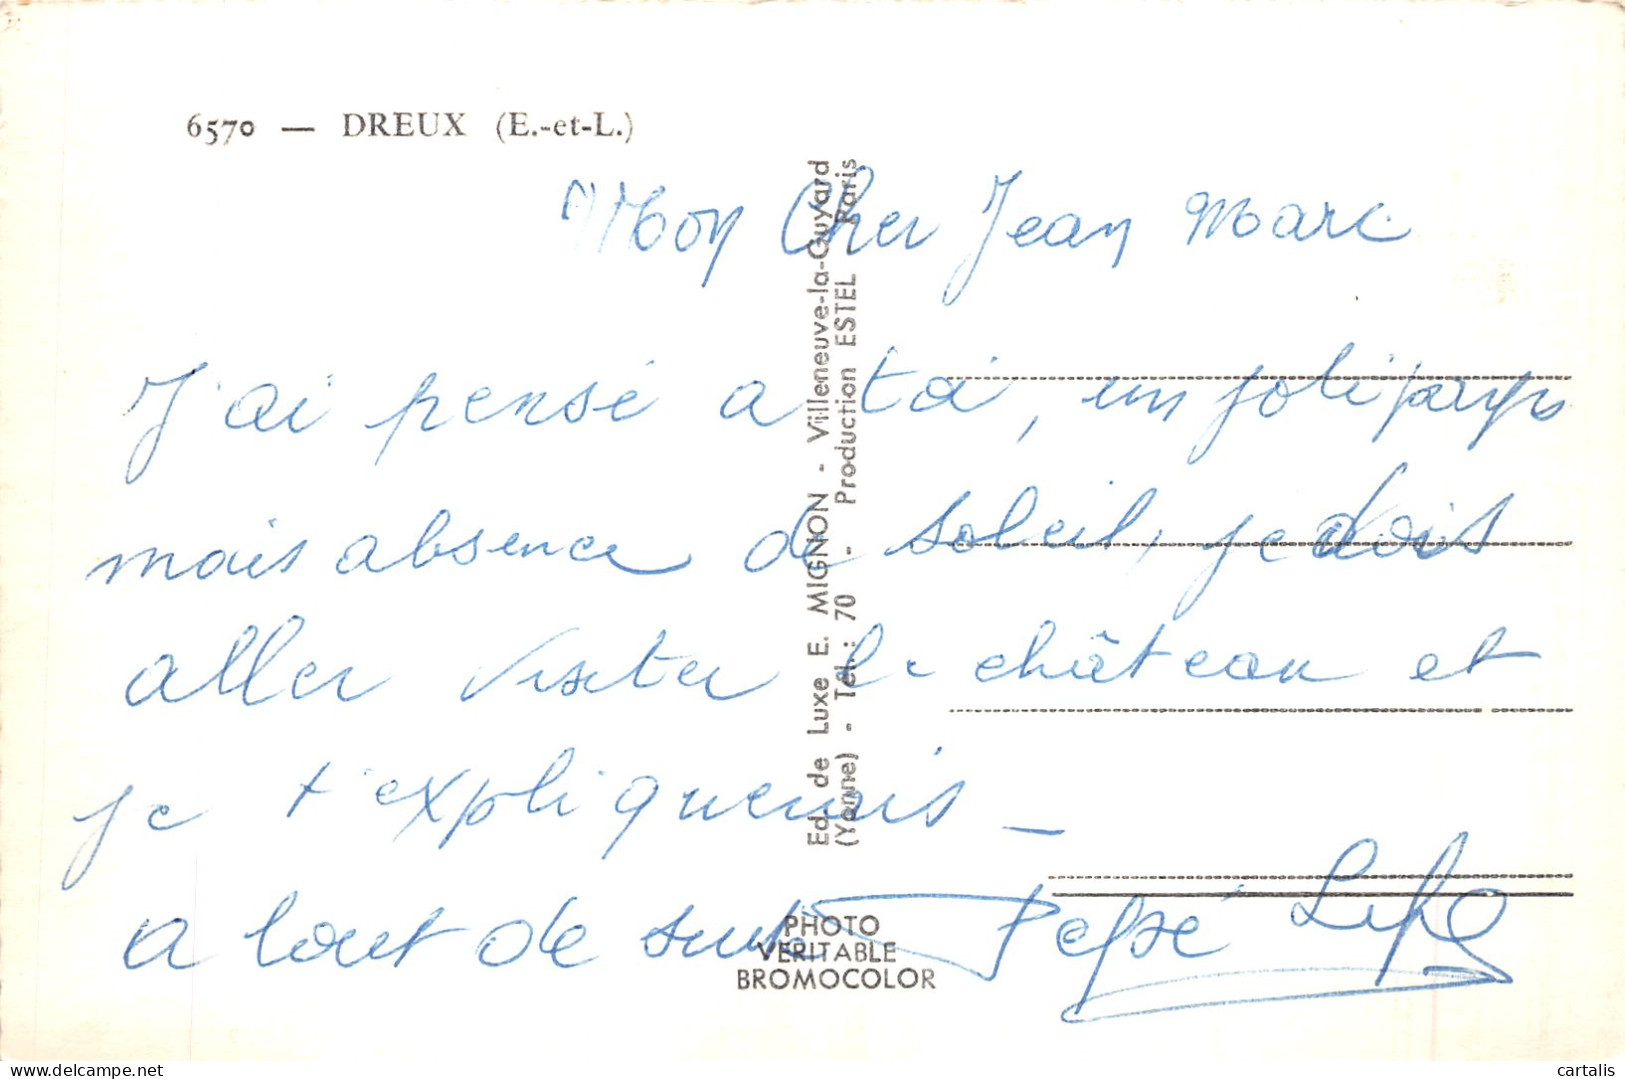 6570 — DREUX (E.-et-L.)
Mon Cher Jean Marc
J'ai pensé a toi, un joli pays
mais absence de soleil, je dois
aller visiter le château et
je t'expliquerais —
a tout de suite Pépé
Ed. de Luxe E. MIGNON - Villeneuve-la-Guyard
(Yonne) - Tél. : 70 - Production ESTEL Paris
PHOTO
VERITABLE
BROMOCOLOR
delcampe.net
cartalis